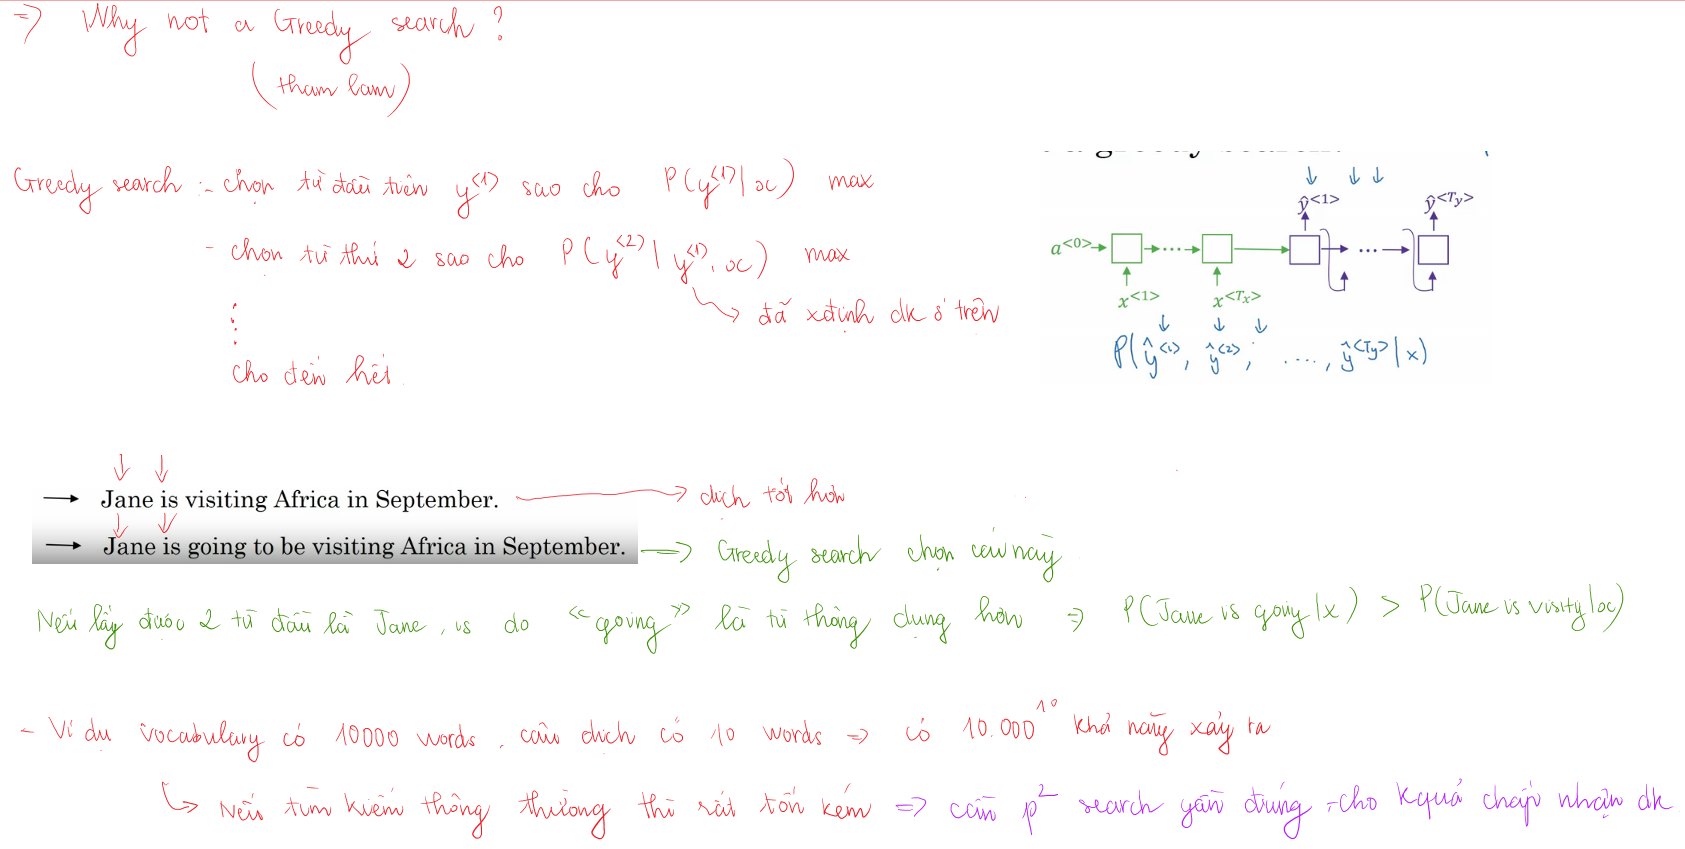 => Why not a Greedy search ?
(tham lam)
Greedy search : - chọn từ đầu tiên y<1> sao cho P(y<1>|x) max
- chọn từ thứ 2 sao cho P(y<2>|y<1>, x) max
-> đã xđịnh đk ở trên
cho đến hết.
ŷ<1> ŷ<Ty>
a<0> ... ...
x<1> x<Tx>
P(ŷ<1>, ŷ<2>, ...., ŷ<Ty>|x)
→ Jane is visiting Africa in September. → dịch tốt hơn
→ Jane is going to be visiting Africa in September. => Greedy search chọn câu này
Nếu lấy được 2 từ đầu là Jane, is do «going» là từ thông dụng hơn => P(Jane is going|x) > P(Jane is visity|x)
- Ví dụ vocabulary có 10000 words, câu dịch có 10 words => có 10.000^10 khả năng xảy ra
↳ Nếu tìm kiếm thông thường thì rất tốn kém => cần p² search gần đúng, cho kquả chấp nhận đk